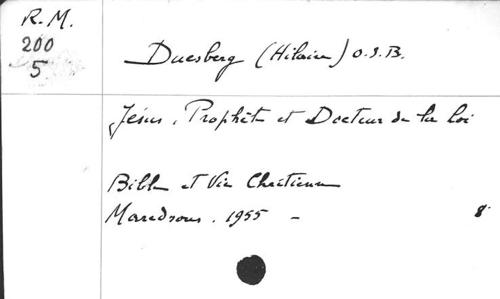 R.M.
200
5.
Duesberg (Hilaire) O.S.B.
Jésus, Prophète et Docteur de la Loi
Bible et Vie Chrétienne
Maredsous. 1955 -
8°